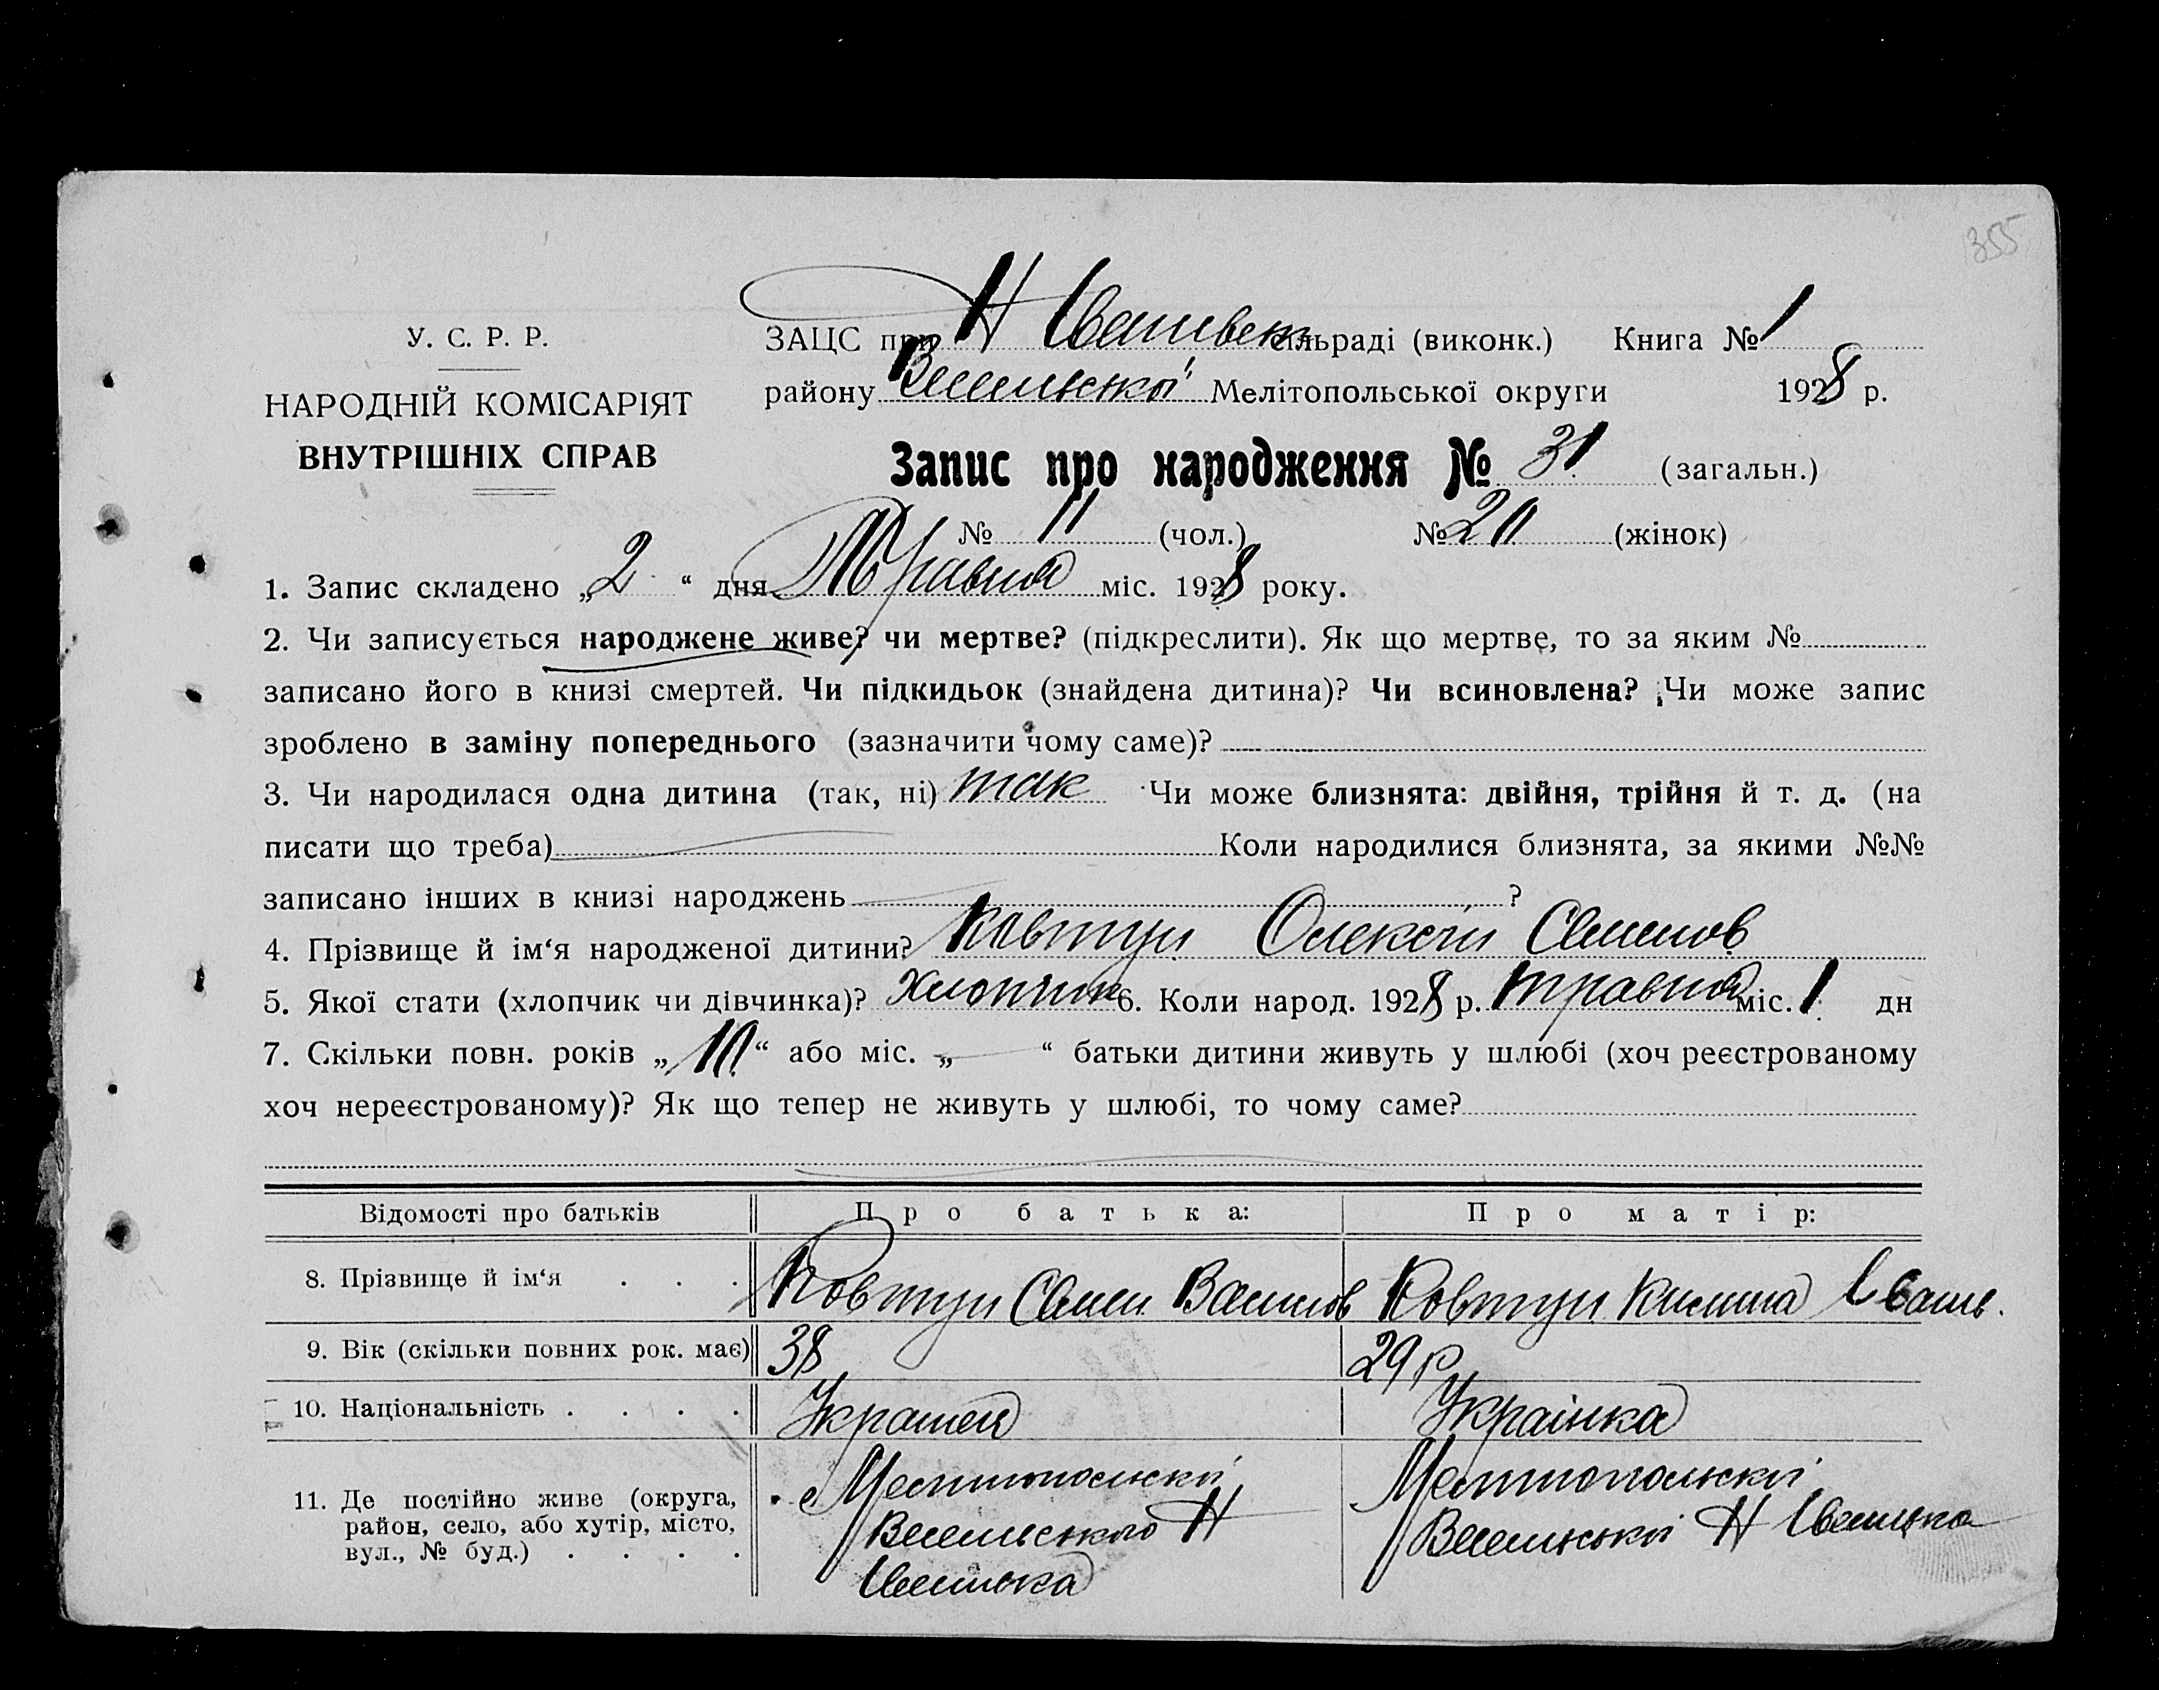 355
У. С. Р. Р.
НАРОДНІЙ КОМІСАРІЯТ
ВНУТРІШНІХ СПРАВ
ЗАЦС при Н Іванівськ сільраді (виконк.) Книга № 1
району Мелітопольської округи 1928 р.
Запис про народження № 31 (загальн.)
№ 11 (чол.) № 20 (жінок)
1. Запис складено „2“ дня Травня міс. 1928 року.
2. Чи записується народжене живе? чи мертве? (підкреслити). Як що мертве, то за яким №
записано його в книзі смертей. Чи підкидьок (знайдена дитина)? Чи всиновлена? Чи може запис
зроблено в заміну попереднього (зазначити чому саме)?
3. Чи народилася одна дитина (так, ні) так Чи може близнята: двійня, трійня й т. д. (на
писати що треба) Коли народилися близнята, за якими №№
записано інших в книзі народжень ?
4. Прізвище й ім‘я народженої дитини? Ковтун Олексій Семенов
5. Якої стати (хлопчик чи дівчинка)? Хлопчик 6. Коли народ. 1928 р. травня міс. 1 дн
7. Скільки повн. років „10“ або міс. „ “ батьки дитини живуть у шлюбі (хоч реєстрованому
хоч нереєстрованому)? Як що тепер не живуть у шлюбі, то чому саме?
Відомості про батьків Про батька: Про матір:
8. Прізвище й ім‘я . . . Ковтун Семен Василов Ковтун Килина Івано.
9. Вік (скільки повних рок. має) 38 29 р
10. Національність . . . . Українка
11. Де постійно живе (округа, Мелітопольскої Мелітопольскої
район, село, або хутір, місто, Н Н
вул., № буд.) . . . .